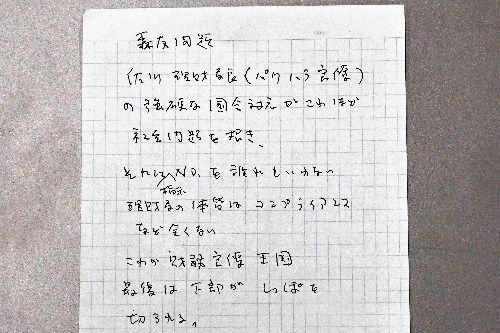 森友問題
佐川理財局長（パワハラ官僚）
の強硬な国会対応がこれほど
社会問題を招き、
それにNO.を誰れもいわない
指示
理財局の体質はコンプライアンス
など全くない
これが財務官僚王国
最後は下部がしっぽを
切られる。